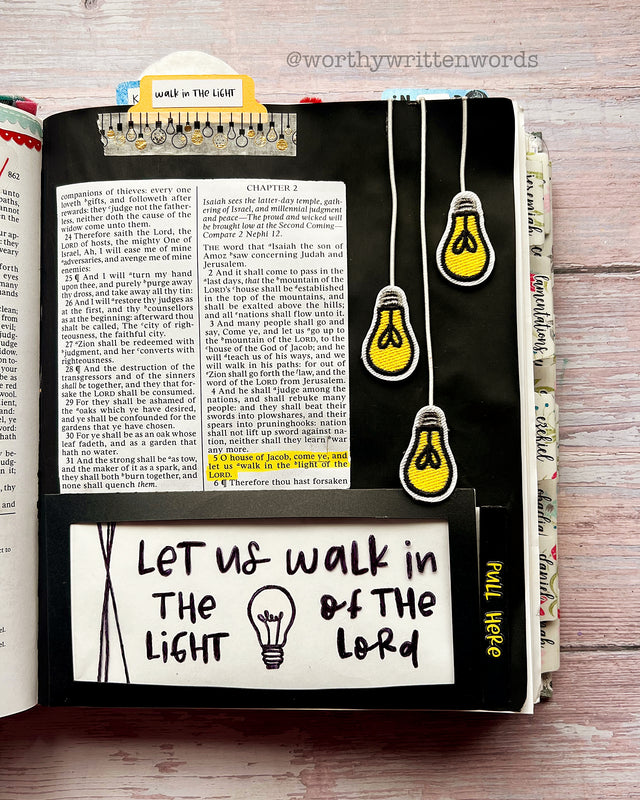 @worthywrittenwords
walk in THE LIGHT
862
companions of thieves: every one
loveth ᵇgifts, and followeth after
rewards: they ᶜjudge not the father-
less, neither doth the cause of the
widow come unto them.
24 Therefore saith the Lord, the
LORD of hosts, the mighty One of
Israel, Ah, I will ease me of mine
ᵃadversaries, and avenge me of mine
enemies:
25 ¶ And I will ᵃturn my hand
upon thee, and purely ᵇpurge away
thy dross, and take away all thy tin:
26 And I will ᵃrestore thy judges as
at the first, and thy ᵇcounsellors
as at the beginning: afterward thou
shalt be called, The ᶜcity of right-
eousness, the faithful city.
27 ᵃZion shall be redeemed with
ᵇjudgment, and her ᶜconverts with
righteousness.
28 ¶ And the destruction of the
transgressors and of the sinners
shall be together, and they that for-
sake the LORD shall be consumed.
29 For they shall be ashamed of
the ᵃoaks which ye have desired,
and ye shall be confounded for the
gardens that ye have chosen.
30 For ye shall be as an oak whose
leaf fadeth, and as a garden that
hath no water.
31 And the strong shall be ᵃas tow,
and the maker of it as a spark, and
they shall both ᵇburn together, and
none shall quench them.
CHAPTER 2
Isaiah sees the latter-day temple, gath-
ering of Israel, and millennial judgment
and peace—The proud and wicked will
be brought low at the Second Coming—
Compare 2 Nephi 12.
THE word that ᵃIsaiah the son of
Amoz ᵇsaw concerning Judah and
Jerusalem.
2 And it shall come to pass in the
ᵃlast days, that the ᵇmountain of the
LORD's ᶜhouse shall be ᵈestablished
in the top of the mountains, and
shall be exalted above the hills;
and all ᵉnations shall flow unto it.
3 And many people shall go and
say, Come ye, and let us ᵃgo up to
the ᵇmountain of the LORD, to the
ᶜhouse of the God of Jacob; and he
will ᵈteach us of his ways, and we
will walk in his paths: for out of
ᵉZion shall go forth the ᶠlaw, and the
word of the LORD from Jerusalem.
4 And he shall ᵃjudge among the
nations, and shall rebuke many
people: and they shall beat their
swords into plowshares, and their
spears into pruninghooks: nation
shall not lift up sword against na-
tion, neither shall they learn ᵇwar
any more.
5 O house of Jacob, come ye, and
let us ᵃwalk in the ᵇlight of the
LORD.
6 ¶ Therefore thou hast forsaken
LET US walk in
THE of THE
LIGHT LORD
PULL HERE
jeremiah
lamentations
ezekiel
obadiah
daniel